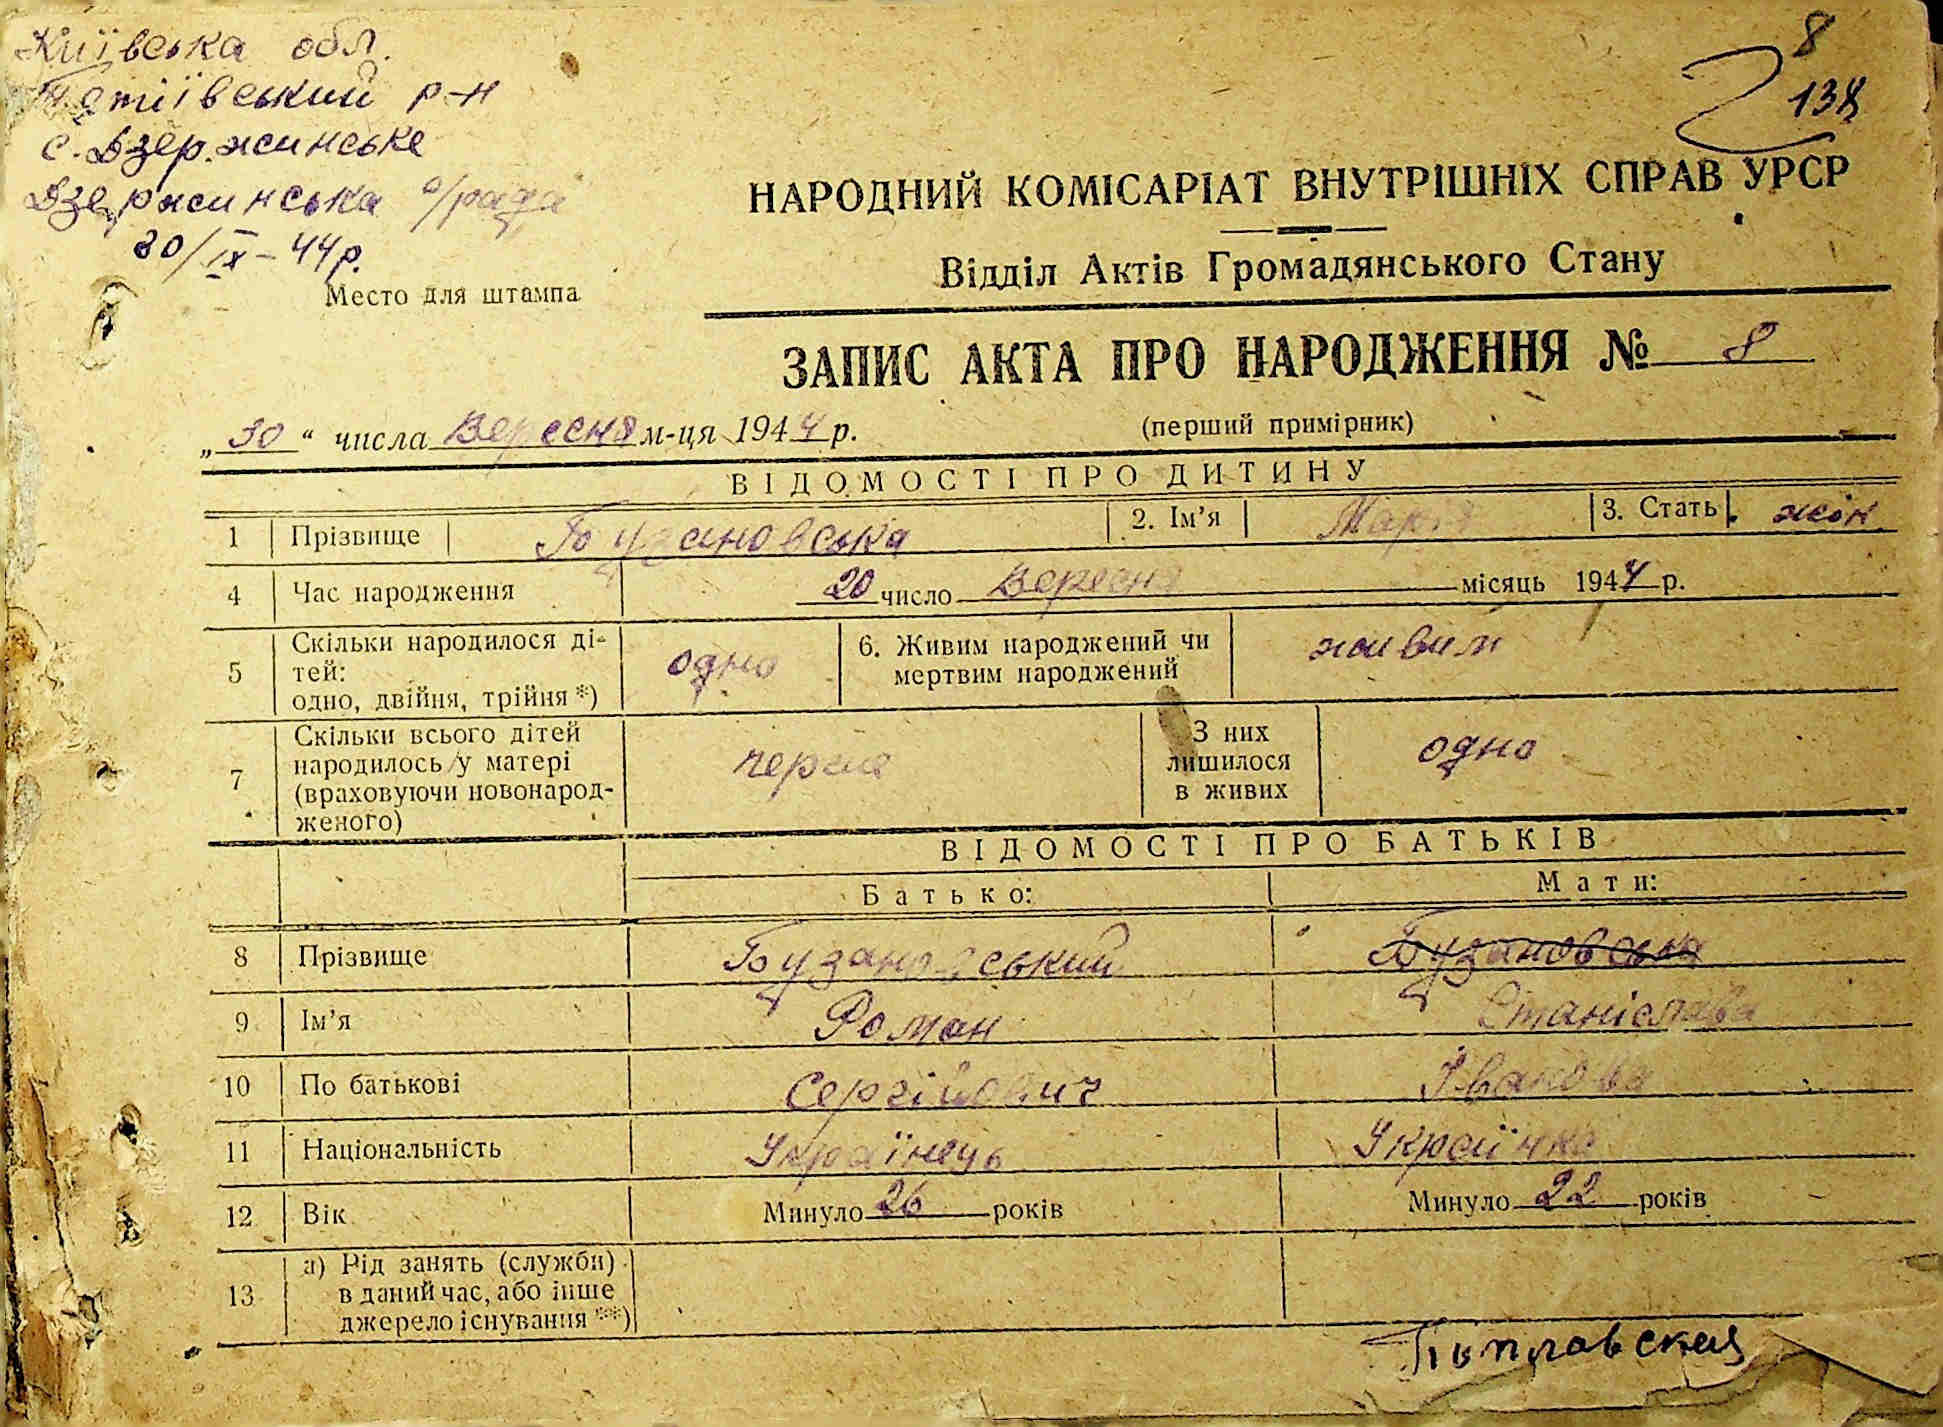 Київська обл.
Тетіївський р-н
с. Дзержинське
Дзержинська с/рада
30/IX – 44 р.
Место для штампа
8
138
НАРОДНИЙ КОМІСАРІАТ ВНУТРІШНІХ СПРАВ УРСР
Відділ Актів Громадянського Стану
ЗАПИС АКТА ПРО НАРОДЖЕННЯ № 8
„30“ числа Вересня м-ця 1944 р. (перший примірник)
ВІДОМОСТІ ПРО ДИТИНУ
1 Прізвище Бузановська 2. Ім’я Марія 3. Стать жін.
4 Час народження 20 число Вересня місяць 1944 р.
5 Скільки народилося ді-
тей:
одно, двійня, трійня *) одно 6. Живим народжений чи
мертвим народжений живим
7 Скільки всього дітей
народилось у матері
(враховуючи новонарод-
женого) перше З них
лишилося
в живих одно
ВІДОМОСТІ ПРО БАТЬКІВ
Батько: Мати:
8 Прізвище Бузановський Бузановська
9 Ім’я Роман Станіслава
10 По батькові Сергійович Іванова
11 Національність Українець Українка
12 Вік Минуло 26 років Минуло 22 років
13 а) Рід занять (служби)
в даний час, або інше
джерело існування **)
Поплавская